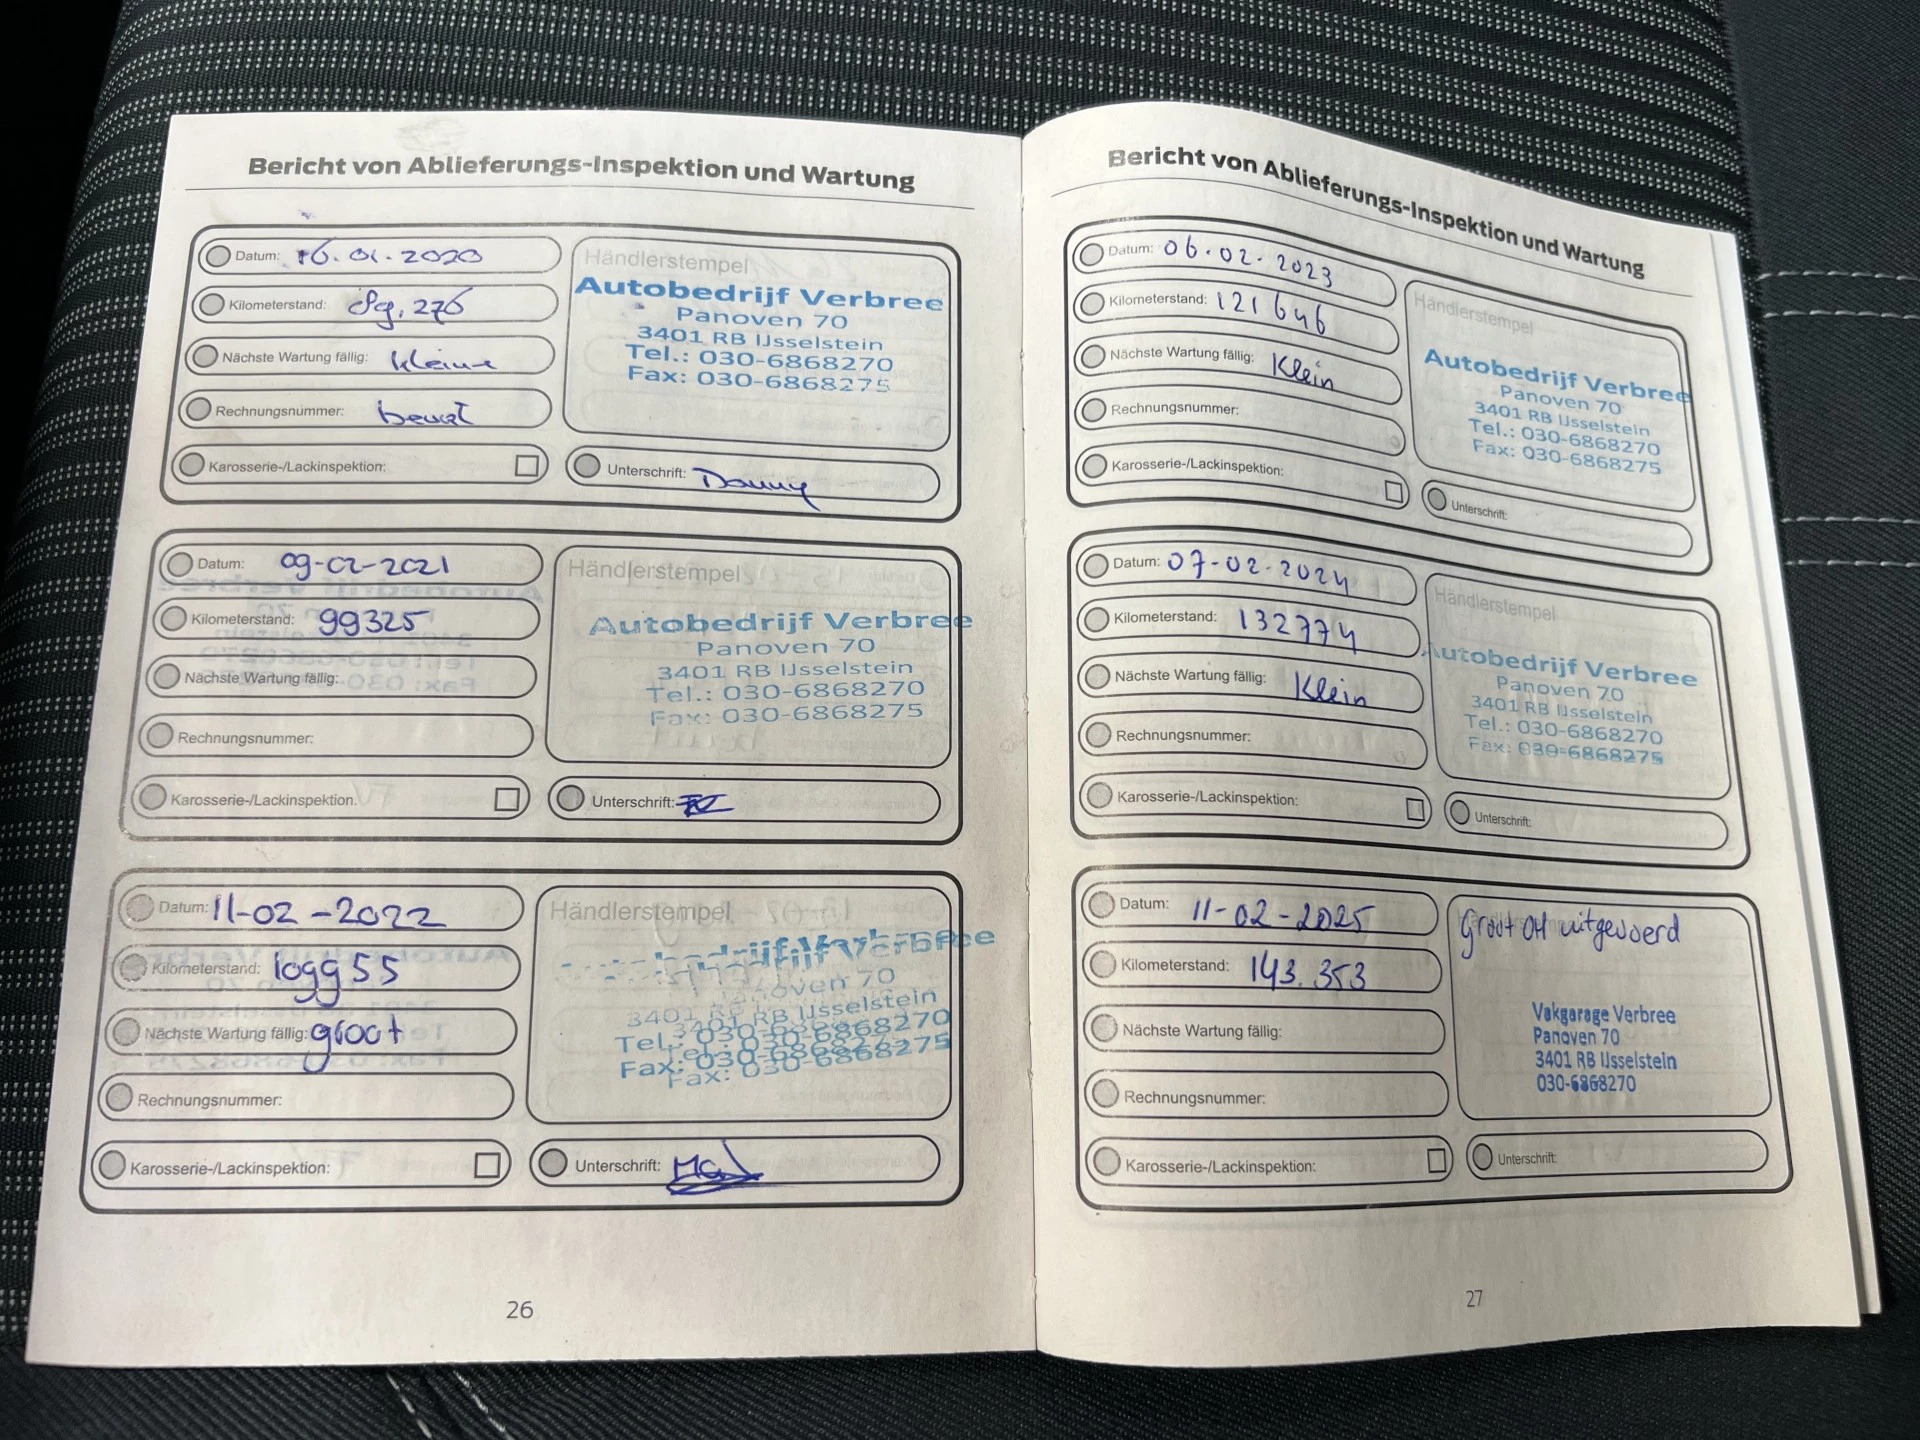 Bericht von Ablieferungs-Inspektion und Wartung
Datum: 16.01.2020
Kilometerstand: 89.276
Nächste Wartung fällig: kleine
Rechnungsnummer: beurt
Karosserie-/Lackinspektion:
Händlerstempel
Autobedrijf Verbree
Panoven 70
3401 RB IJsselstein
Tel.: 030-6868270
Fax: 030-6868275
Unterschrift: Danny
Datum: 09-02-2021
Kilometerstand: 99325
Nächste Wartung fällig:
Rechnungsnummer:
Karosserie-/Lackinspektion:
Händlerstempel
Autobedrijf Verbree
Panoven 70
3401 RB IJsselstein
Tel.: 030-6868270
Fax: 030-6868275
Unterschrift:
Datum: 11-02-2022
Kilometerstand: 109955
Nächste Wartung fällig: groot
Rechnungsnummer:
Karosserie-/Lackinspektion:
Händlerstempel
Autobedrijf Verbree
Panoven 70
3401 RB IJsselstein
Tel.: 030-6868270
Fax: 030-6868275
Unterschrift:
26
Bericht von Ablieferungs-Inspektion und Wartung
Datum: 06.02.2023
Kilometerstand: 121646
Nächste Wartung fällig: Klein
Rechnungsnummer:
Karosserie-/Lackinspektion:
Händlerstempel
Autobedrijf Verbree
Panoven 70
3401 RB IJsselstein
Tel.: 030-6868270
Fax: 030-6868275
Unterschrift:
Datum: 07-02-2024
Kilometerstand: 132774
Nächste Wartung fällig: Klein
Rechnungsnummer:
Karosserie-/Lackinspektion:
Händlerstempel
Autobedrijf Verbree
Panoven 70
3401 RB IJsselstein
Tel.: 030-6868270
Fax: 030-6868275
Unterschrift:
Datum: 11-02-2025
Kilometerstand: 143.353
Nächste Wartung fällig:
Rechnungsnummer:
Karosserie-/Lackinspektion:
Händlerstempel
Groot OH uitgevoerd
Vakgarage Verbree
Panoven 70
3401 RB IJsselstein
030-6868270
Unterschrift:
27